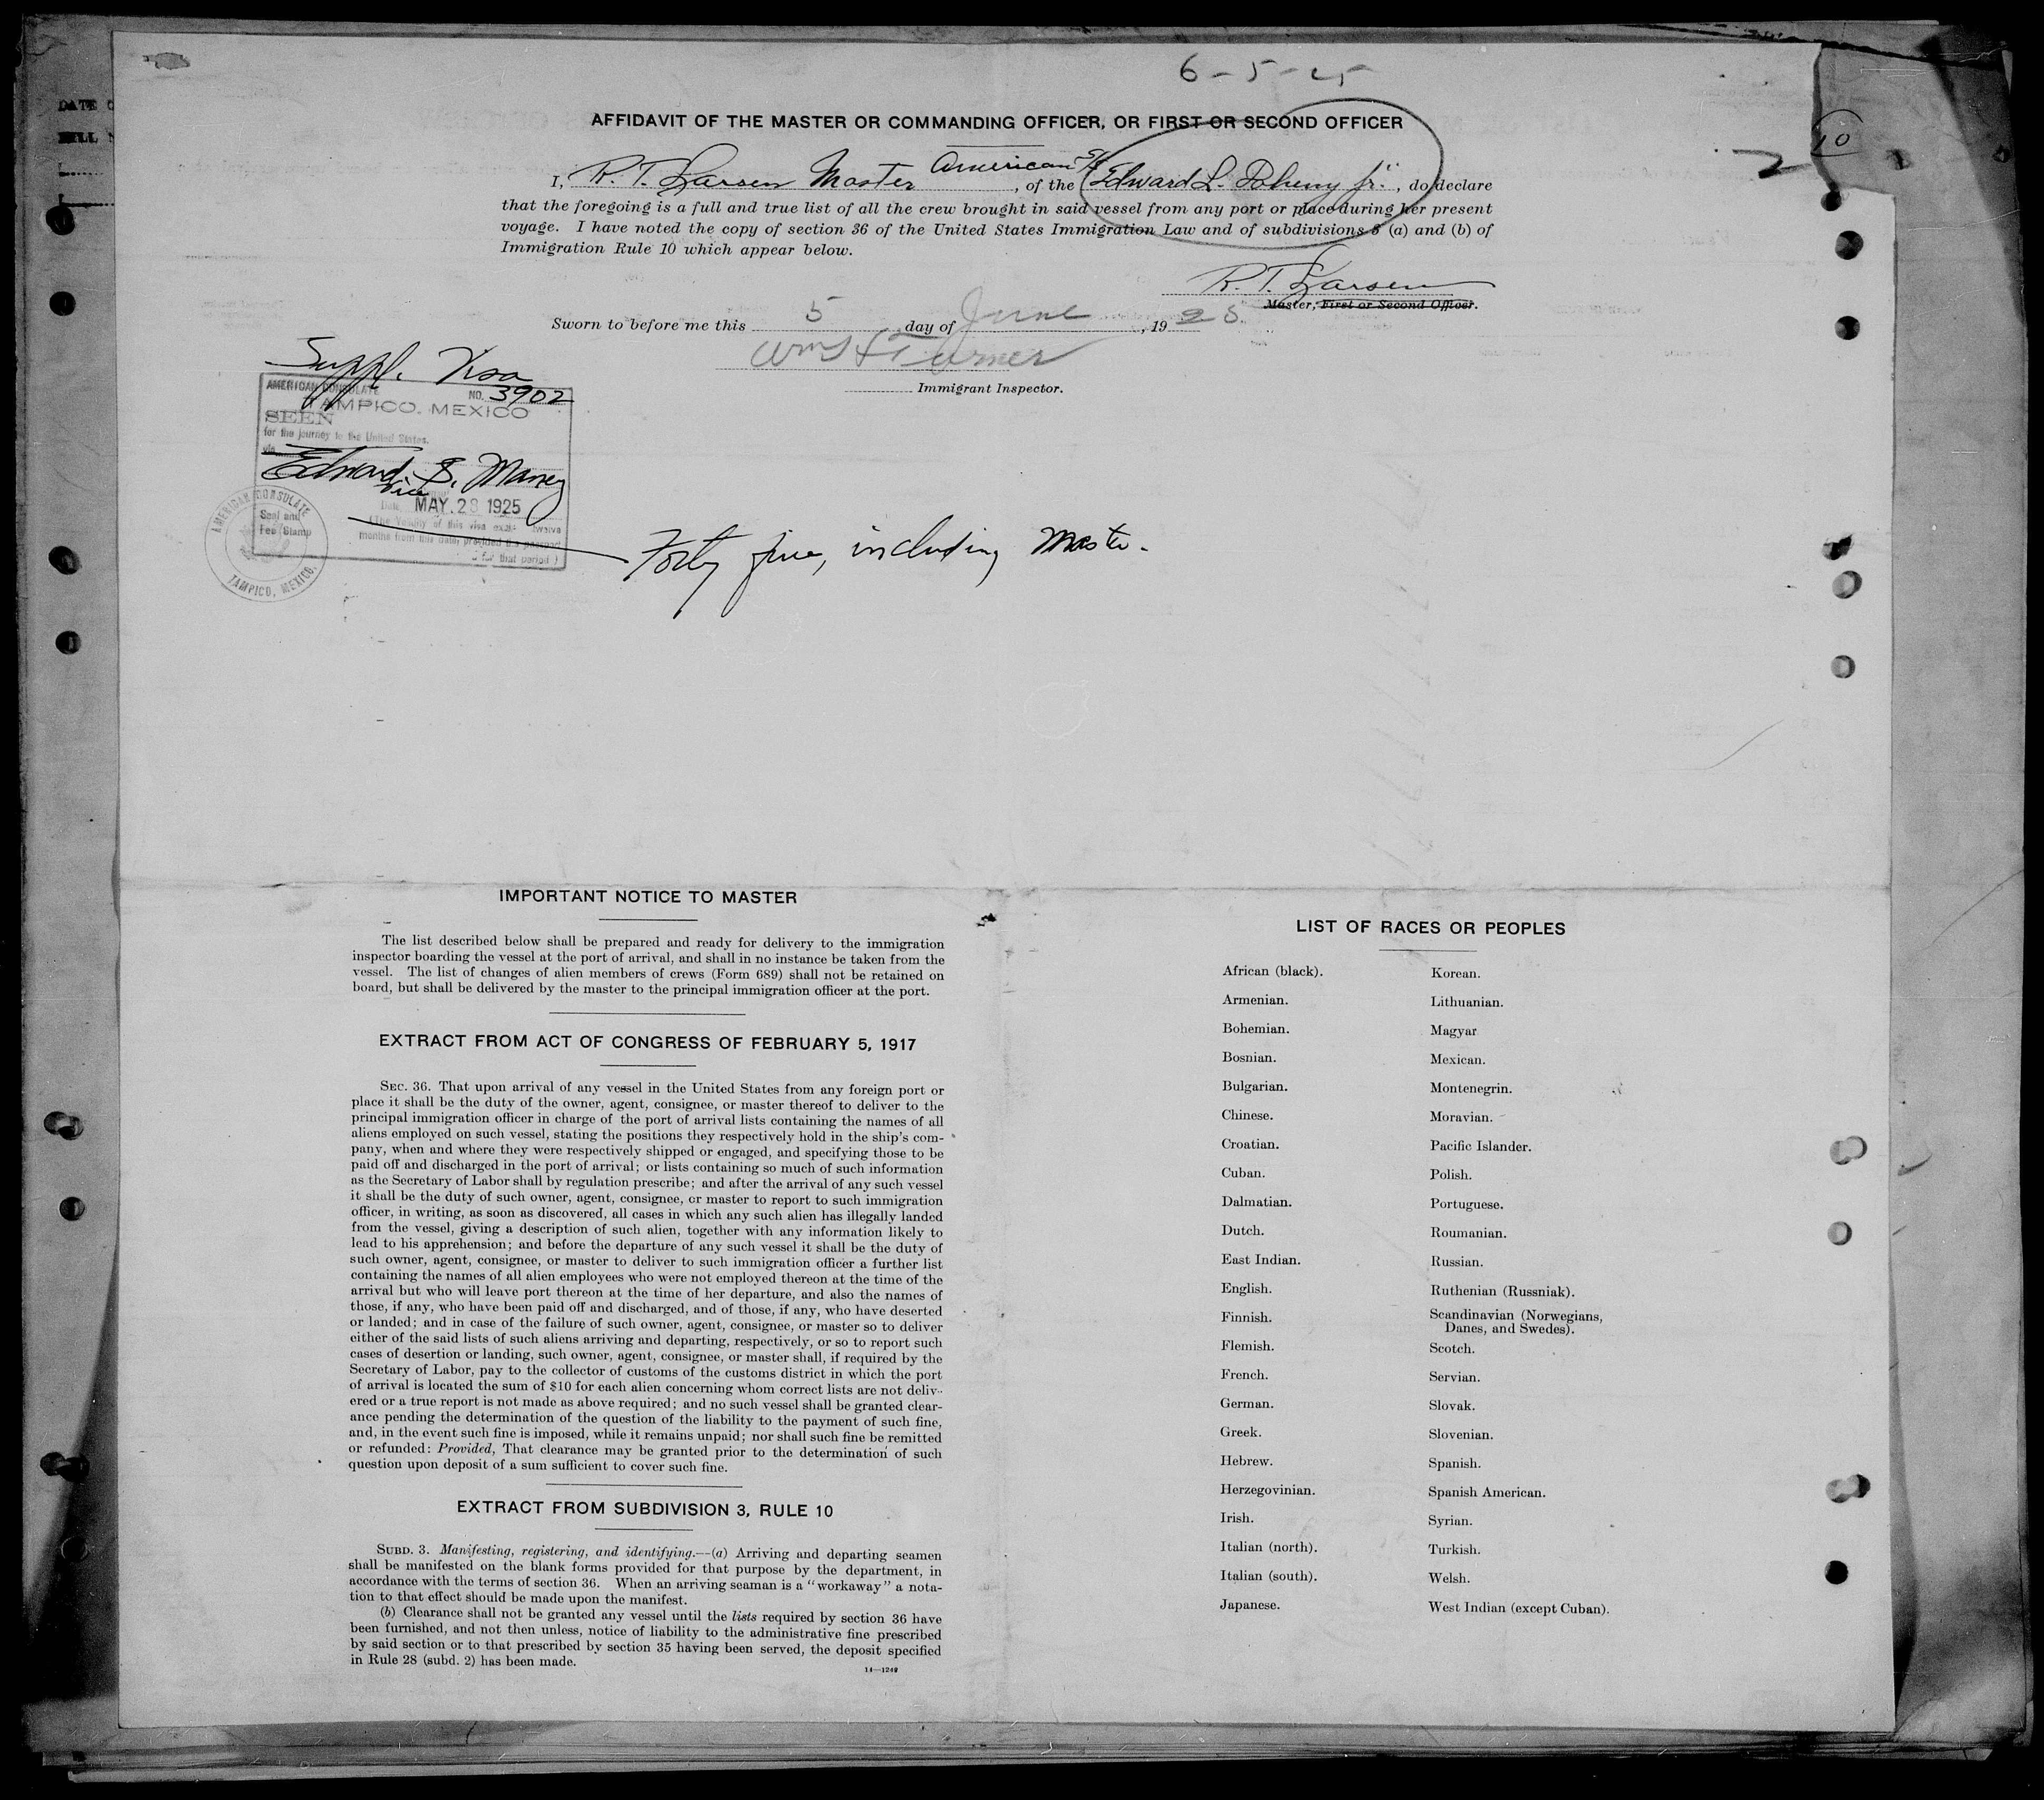 6-5-25
DATE
AFFIDAVIT OF THE MASTER OR COMMANDING OFFICER, OR FIRST OR SECOND OFFICER
10
2
I, R. T. Larsen Master American S/S, of the Edward L. Doheny Jr., do declare
that the foregoing is a full and true list of all the crew brought in said vessel from any port or place during her present
voyage. I have noted the copy of section 36 of the United States Immigration Law and of subdivisions 3 (a) and (b) of
Immigration Rule 10 which appear below.
R. T. Larsen
Master, First or Second Officer.
Sworn to before me this 5 day of June, 1925.
Turner
Immigrant Inspector.
Suppl. Visa
AMERICAN CONSULATE
NO. 3902
TAMPICO, MEXICO
SEEN
for the journey to the United States.
via
Edward S. Maney
Vice
Date, MAY 28 1925
(The validity of this visa twelve
months from this date, provided the passport
for that period)
AMERICAN CONSULATE
Seal and
Fee Stamp
TAMPICO, MEXICO.
Forty five, including Master.
IMPORTANT NOTICE TO MASTER
The list described below shall be prepared and ready for delivery to the immigration
inspector boarding the vessel at the port of arrival, and shall in no instance be taken from the
vessel. The list of changes of alien members of crews (Form 689) shall not be retained on
board, but shall be delivered by the master to the principal immigration officer at the port.
EXTRACT FROM ACT OF CONGRESS OF FEBRUARY 5, 1917
SEC. 36. That upon arrival of any vessel in the United States from any foreign port or
place it shall be the duty of the owner, agent, consignee, or master thereof to deliver to the
principal immigration officer in charge of the port of arrival lists containing the names of all
aliens employed on such vessel, stating the positions they respectively hold in the ship's com-
pany, when and where they were respectively shipped or engaged, and specifying those to be
paid off and discharged in the port of arrival; or lists containing so much of such information
as the Secretary of Labor shall by regulation prescribe; and after the arrival of any such vessel
it shall be the duty of such owner, agent, consignee, or master to report to such immigration
officer, in writing, as soon as discovered, all cases in which any such alien has illegally landed
from the vessel, giving a description of such alien, together with any information likely to
lead to his apprehension; and before the departure of any such vessel it shall be the duty of
such owner, agent, consignee, or master to deliver to such immigration officer a further list
containing the names of all alien employees who were not employed thereon at the time of the
arrival but who will leave port thereon at the time of her departure, and also the names of
those, if any, who have been paid off and discharged, and of those, if any, who have deserted
or landed; and in case of the failure of such owner, agent, consignee, or master so to deliver
either of the said lists of such aliens arriving and departing, respectively, or so to report such
cases of desertion or landing, such owner, agent, consignee, or master shall, if required by the
Secretary of Labor, pay to the collector of customs of the customs district in which the port
of arrival is located the sum of $10 for each alien concerning whom correct lists are not deliv-
ered or a true report is not made as above required; and no such vessel shall be granted clear-
ance pending the determination of the question of the liability to the payment of such fine,
and, in the event such fine is imposed, while it remains unpaid; nor shall such fine be remitted
or refunded: Provided, That clearance may be granted prior to the determination of such
question upon deposit of a sum sufficient to cover such fine.
EXTRACT FROM SUBDIVISION 3, RULE 10
SUBD. 3. Manifesting, registering, and identifying.—(a) Arriving and departing seamen
shall be manifested on the blank forms provided for that purpose by the department, in
accordance with the terms of section 36. When an arriving seaman is a "workaway" a nota-
tion to that effect should be made upon the manifest.
(b) Clearance shall not be granted any vessel until the lists required by section 36 have
been furnished, and not then unless, notice of liability to the administrative fine prescribed
by said section or to that prescribed by section 35 having been served, the deposit specified
in Rule 28 (subd. 2) has been made.
14—1242
LIST OF RACES OR PEOPLES
African (black).
Armenian.
Bohemian.
Bosnian.
Bulgarian.
Chinese.
Croatian.
Cuban.
Dalmatian.
Dutch.
East Indian.
English.
Finnish.
Flemish.
French.
German.
Greek.
Hebrew.
Herzegovinian.
Irish.
Italian (north).
Italian (south).
Japanese.
Korean.
Lithuanian.
Magyar
Mexican.
Montenegrin.
Moravian.
Pacific Islander.
Polish.
Portuguese.
Roumanian.
Russian.
Ruthenian (Russniak).
Scandinavian (Norwegians,
Danes, and Swedes).
Scotch.
Servian.
Slovak.
Slovenian.
Spanish.
Spanish American.
Syrian.
Turkish.
Welsh.
West Indian (except Cuban).